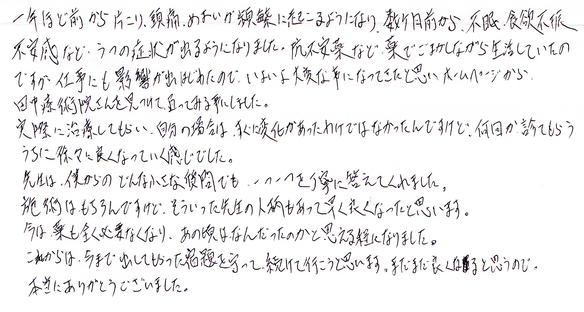 一年ほど前から片こり、頭痛、めまいが頻繁に起こるようになり、数ヶ月前から、不眠、食欲不振
不安感など、うつの症状が出るようになりました。抗不安薬など、薬でごまかしながら生活していたの
ですが、仕事にも影響が出はじめたので、いよいよ大変な事になってきたと思いホームページから
田中療術院さんを見つけて、行ってみる事にしました。
実際に治療してもらい、自分の場合は、すぐに変化があったわけではなかったんですけど、何回か診てもらう
うちに徐々に良くなっていく感じでした。
先生は、僕からのどんな小さな質問でも、一つ一つを丁寧に答えてくれました。
施術はもちろんですけど、そういった先生の人柄もあって早く良くなったと思います。
今は薬も全く必要なくなり、あの頃はなんだったのかと思える程になりました。
これからは、今まで出してもらった宿題を守って、続けて行こうと思います。まだまだ良くなると思うので。
本当にありがとうございました。